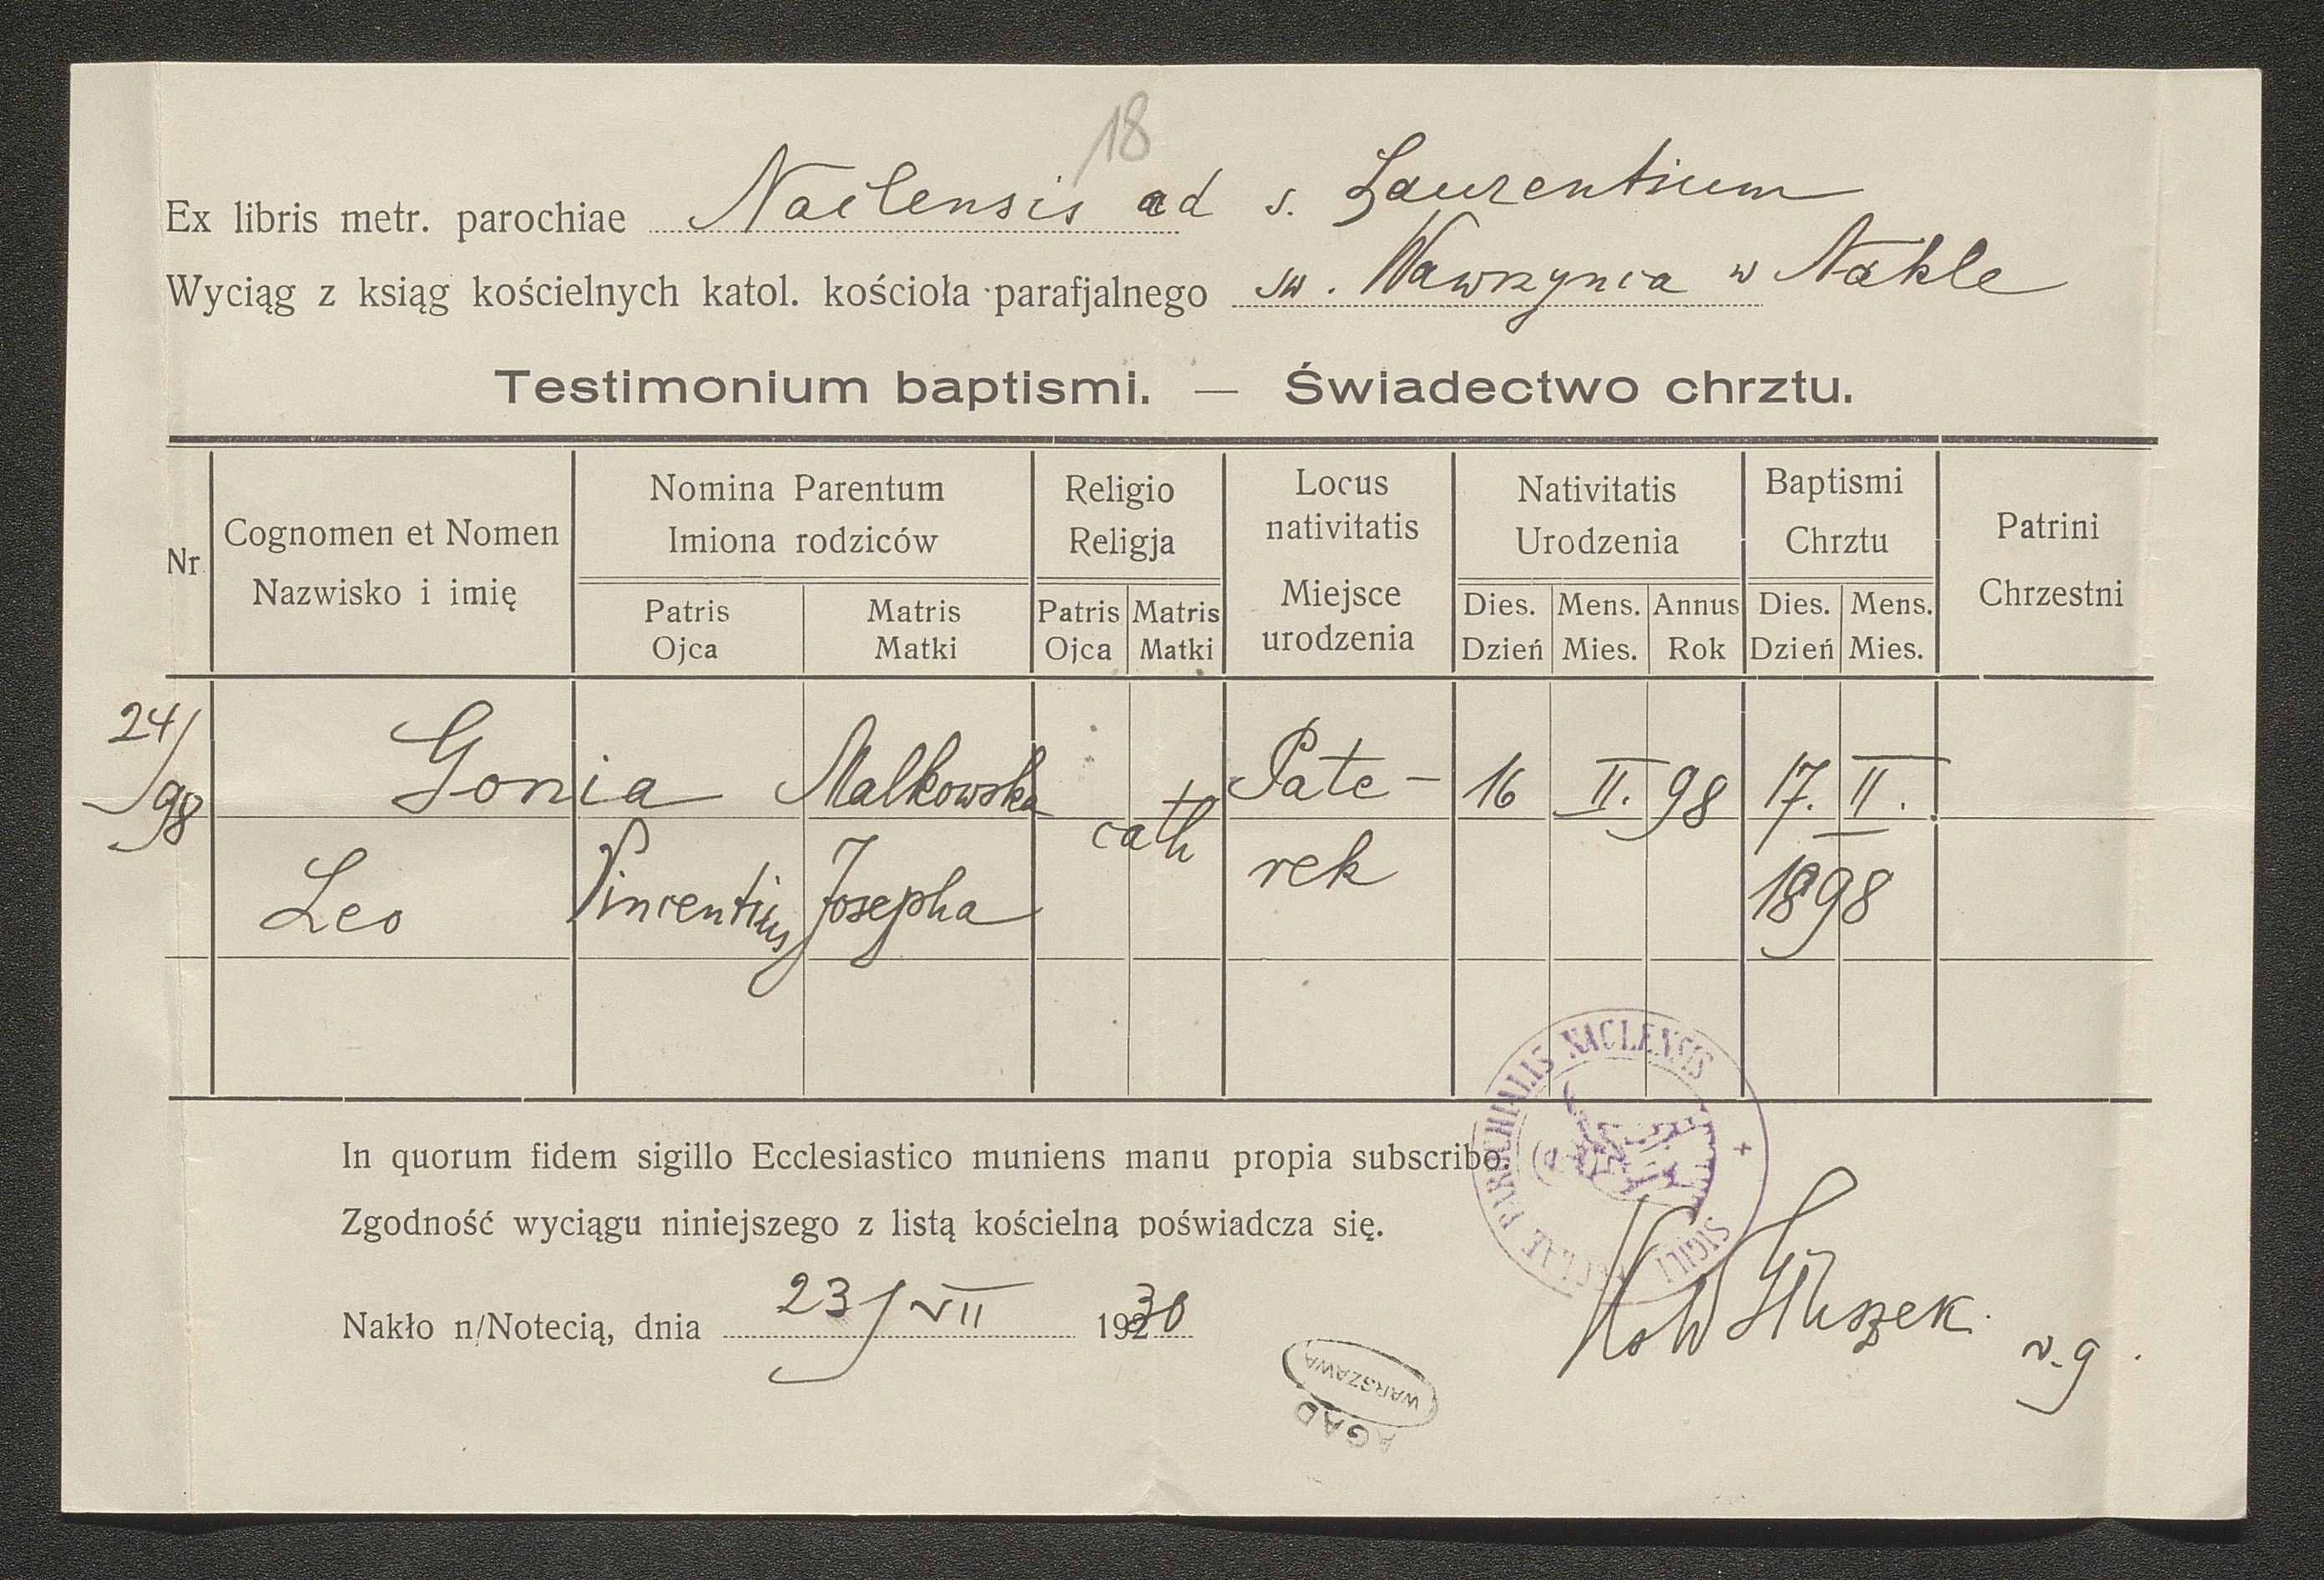 18
Ex libris metr. parochiae Naclensis ad s. Laurentium
Wyciąg z ksiąg kościelnych katol. kościoła parafjalnego św. Wawrzynca w Nakle
Testimonium baptismi. — Świadectwo chrztu.
Nr. Cognomen et Nomen Nazwisko i imię
Nomina Parentum Imiona rodziców
Patris Ojca Matris Matki
Religio Religja
Patris Ojca Matris Matki
Locus nativitatis Miejsce urodzenia
Nativitatis Urodzenia
Dies. Dzień Mens. Mies. Annus Rok
Baptismi Chrztu
Dies. Dzień Mens. Mies.
Patrini Chrzestni
24/98 Gonia Malkowska cath Pate- 16 II. 98 17. II.
Leo Vincentius Josepha rek 1898
In quorum fidem sigillo Ecclesiastico muniens manu propia subscribo.
Zgodność wyciągu niniejszego z listą kościelną poświadcza się.
Nakło n/Notecią, dnia 23/VII 1930
PAROCHIALIS NACLENSIS + SIGILL
AGAD
WARSZAWA